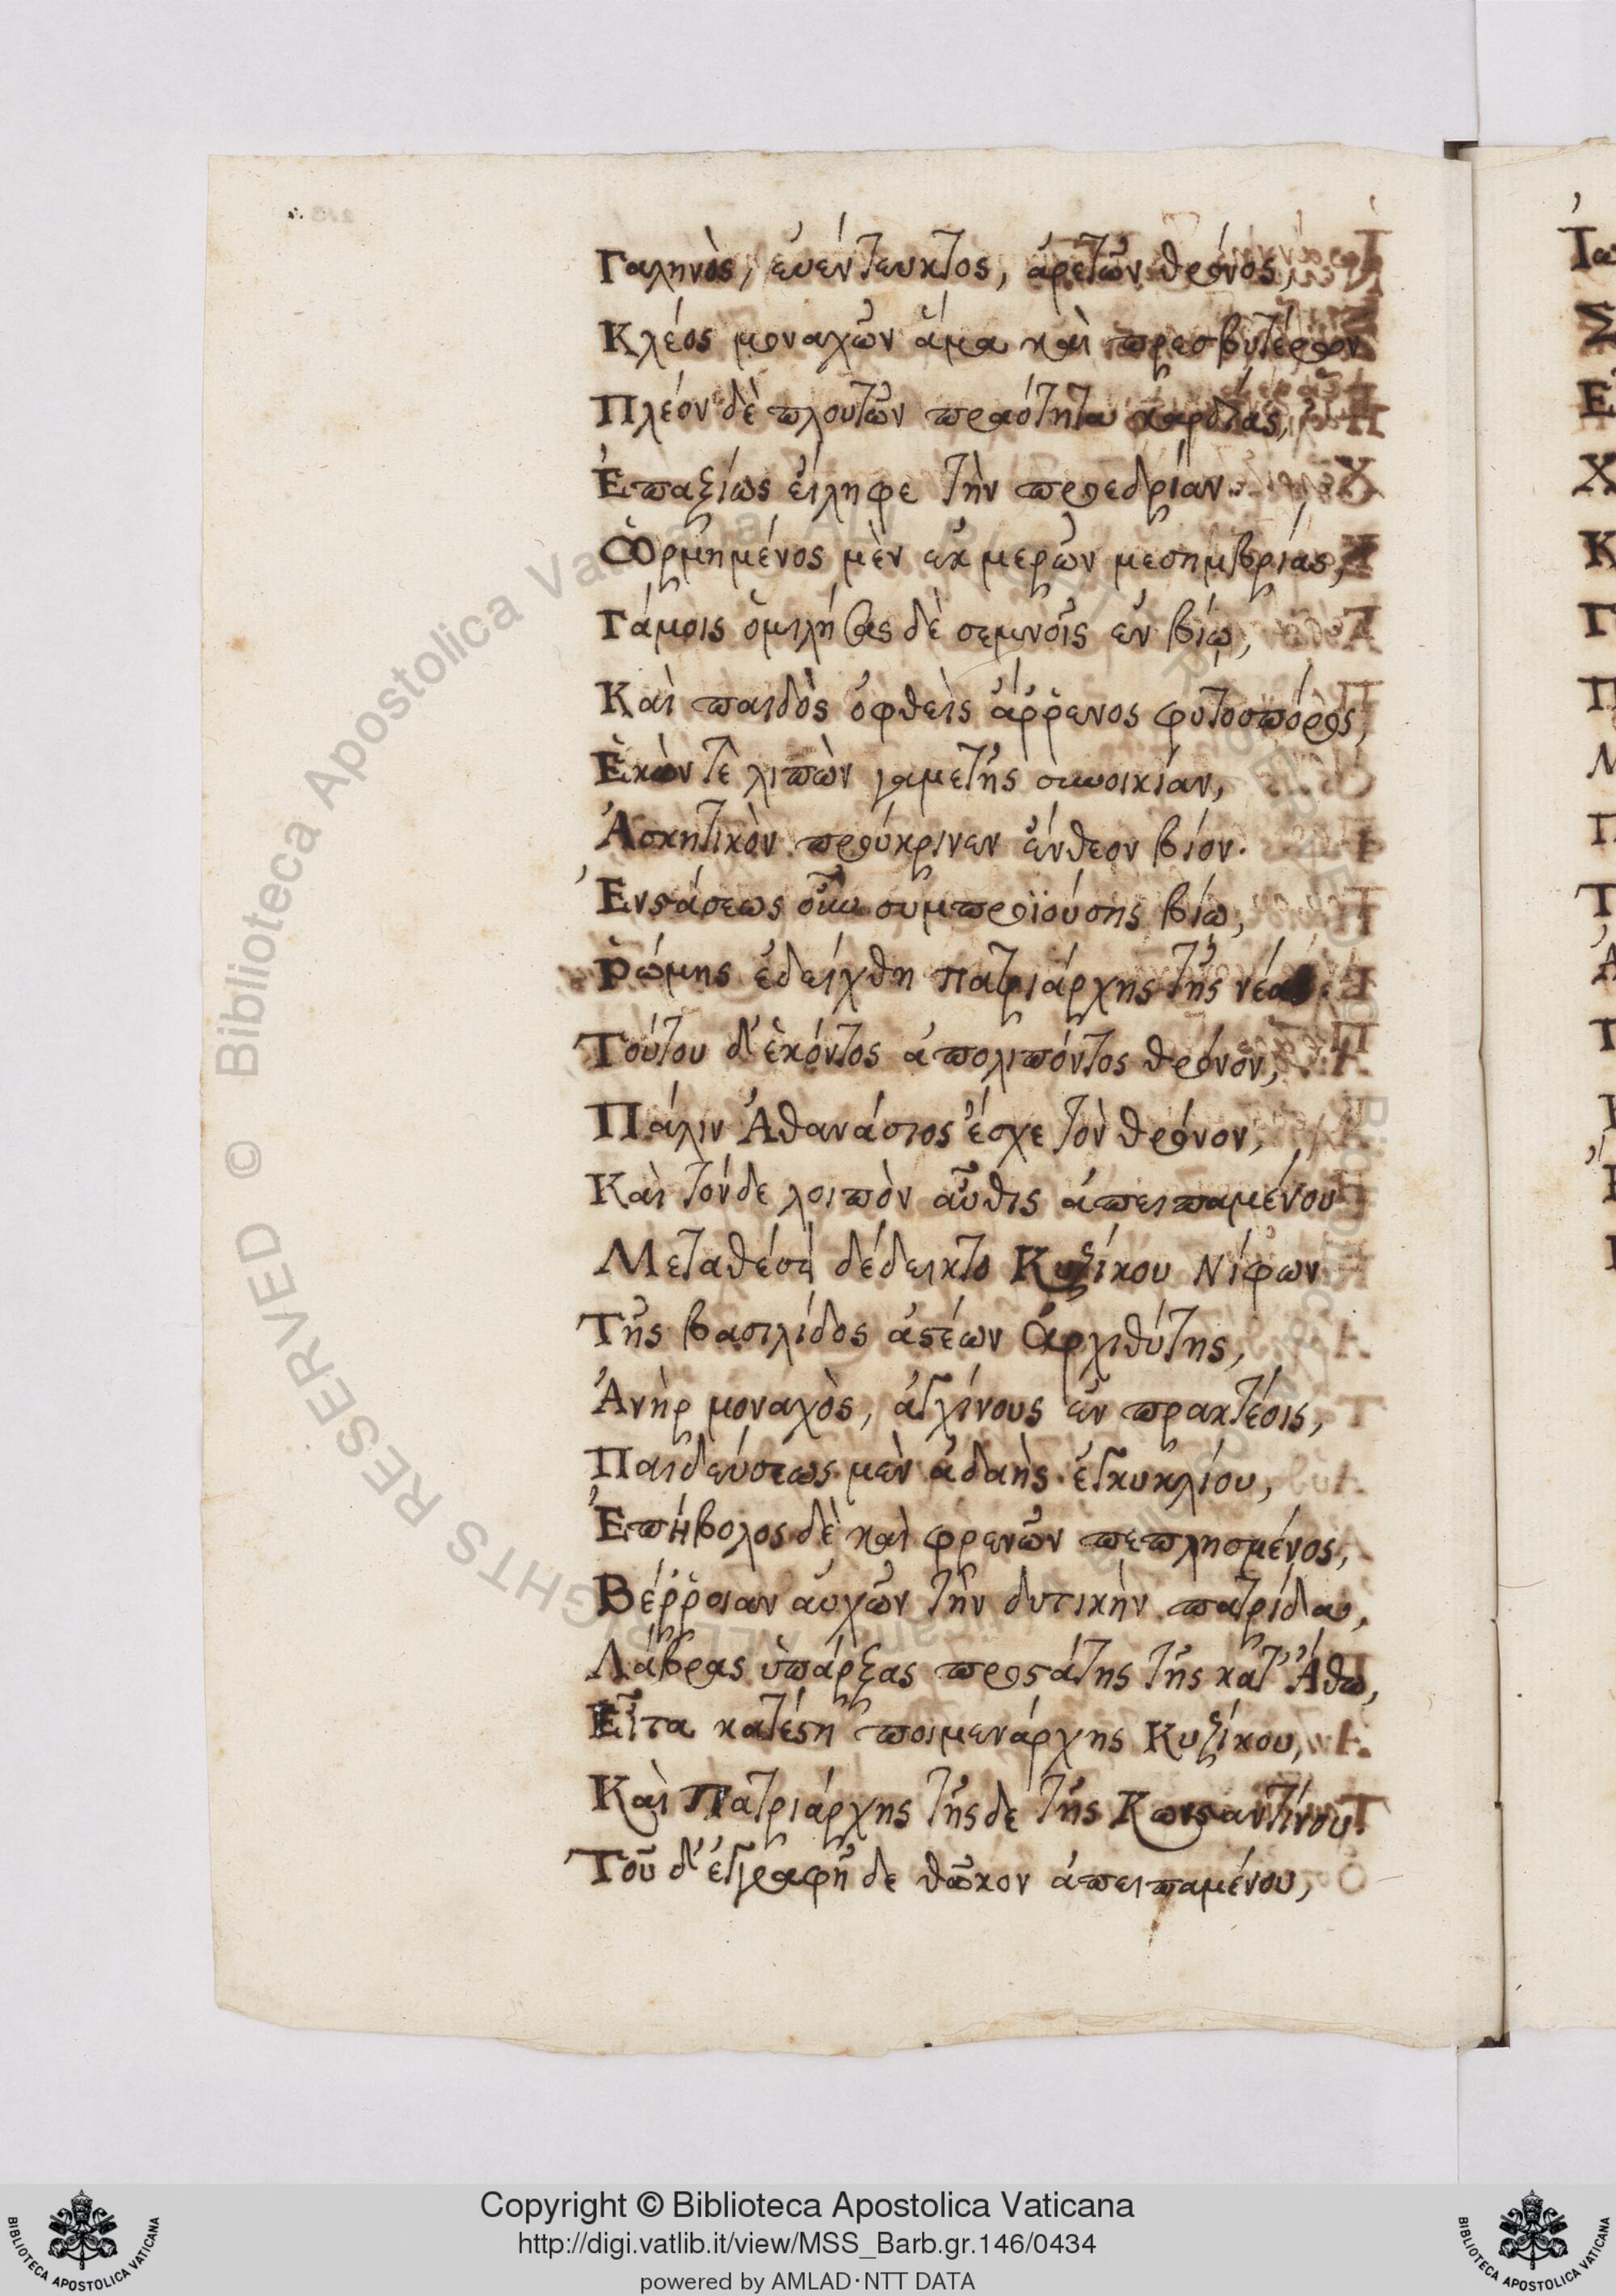 Γαληνὸς, εὐέντευκτος, ἀρετῶν θρόνος,
Κλέος μοναχῶν ἅμα καὶ πρεσβυτέρων
Πλέον δὲ πλουτῶν πραότητα καρδίας,
Ἐπαξίως εἴληφε τὴν προεδρίαν.
Ὡρμημένος μὲν ἐκ μερῶν μεσημβρίας,
Γάμοις ὁμιλήσας δὲ σεμνοῖς ἐν βίῳ,
Καὶ παιδὸς ὀφθεὶς ἄῤῥενος φυτοσπόρος,
Ἑκὼν τὲ λιπὼν γαμετῆς συνοικίαν,
Ἀσκητικὸν προύκρινεν ἔνθεον βίον.
Ἐνστάσεως οὖν συμπροϊούσης βίω,
Ῥώμης ἐδείχθη πατριάρχης τῆς νέας.
Τούτου δ' ἑκόντος ἀπολιπόντος θρόνον,
Πάλιν Ἀθανάσιος ἔσχε τὸν θρόνον,
Καὶ τόνδε λοιπὸν αὖθις ἀπειπαμένου
Μεταθέσει δέδεικτο Κυζίκου Νίφων
Τῆς βασιλίδος ἀστέων ἀρχιθύτης,
Ἀνὴρ μοναχὸς, ἀγχίνους ἐν πρακτέοις,
Παιδεύσεως μὲν ἀδαὴς ἐγκυκλίου,
Ἐπήβολος δὲ καὶ φρενῶν πεπλησμένος,
Βέῤῥοιαν αὐχῶν τὴν δυτικὴν πατρίδα,
Λάβρας ὑπάρξας προστάτης τῆς κατ' Ἄθω,
Εἶτα κατέστη ποιμενάρχης Κυζίκου,
Καὶ Πατριάρχης τῆς δε τῆς Κωνσταντίνου.
Τοῦ δ' ἐγγραφῆ δε θῶκον ἀπειπαμένου,
Copyright © Biblioteca Apostolica Vaticana
http://digi.vatlib.it/view/MSS_Barb.gr.146/0434
powered by AMLAD·NTT DATA